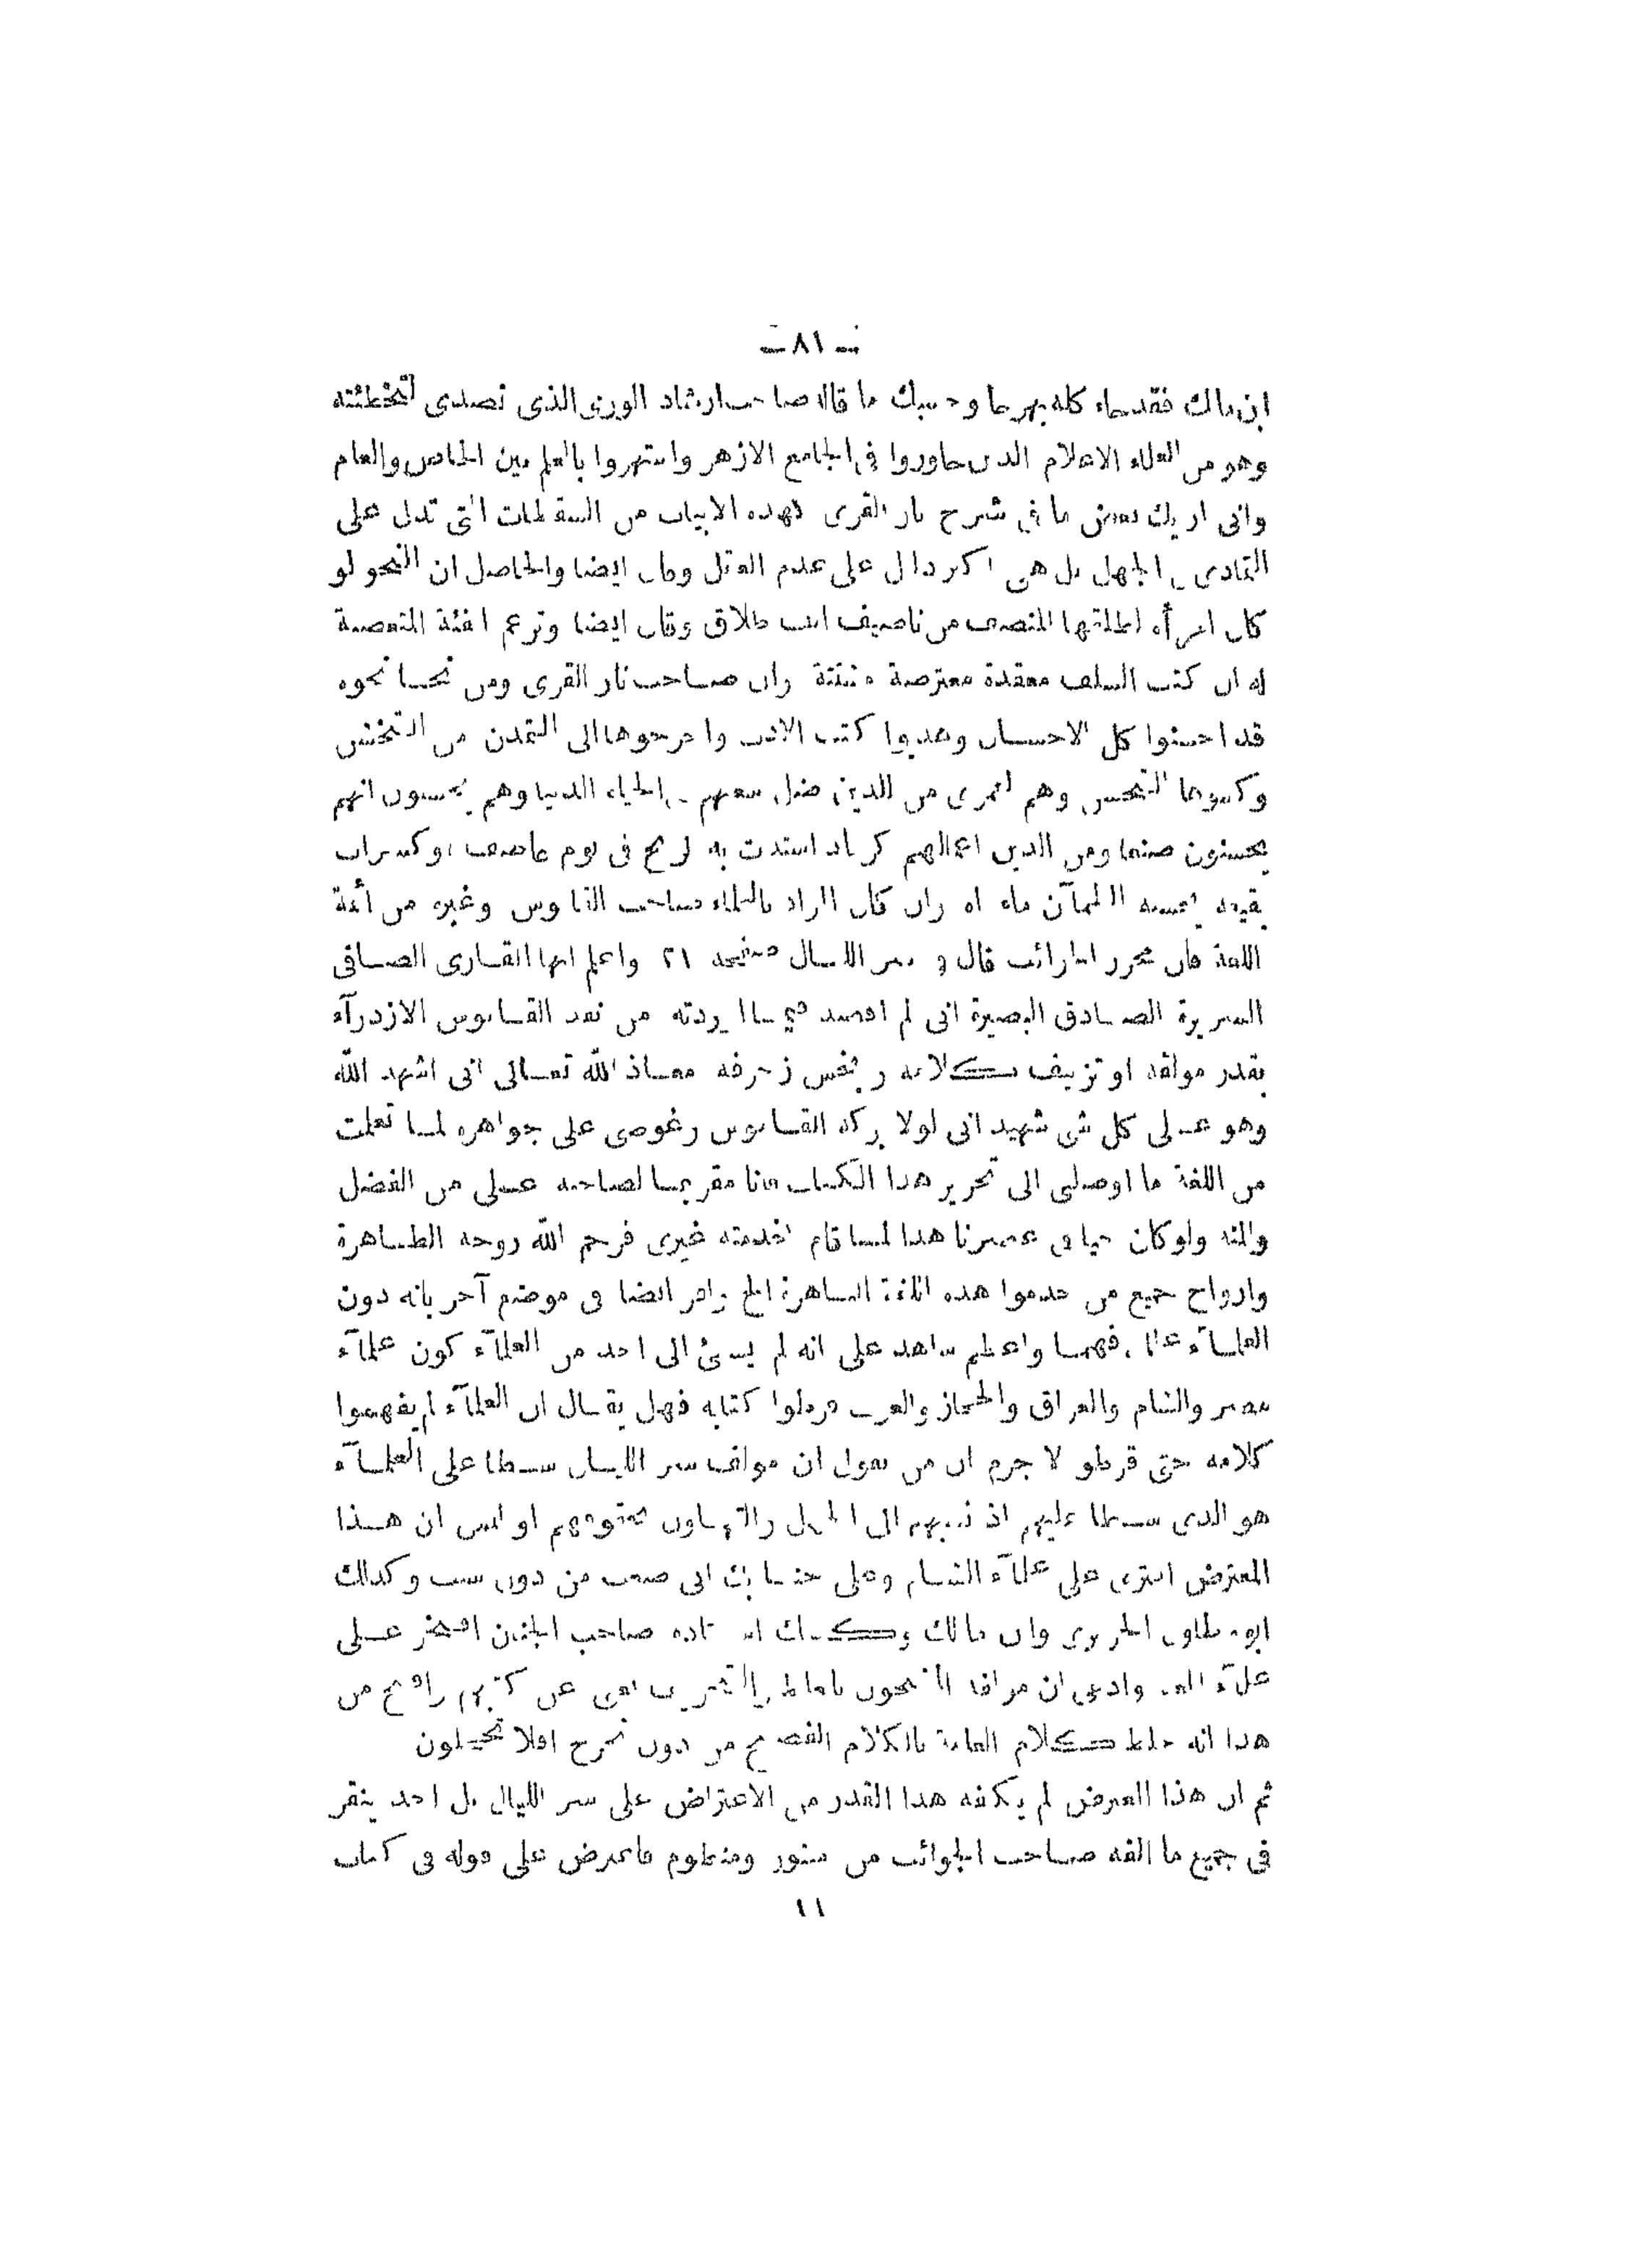 ـ ٨١ ـ
ابن مالك فقد جاء كله بهرجا وحسبك ما قاله صاحب ارشاد الورى الذى تصدى لتخطئته
وهو من العلماء الاعلام الذين جاوروا فى الجامع الازهر واشتهروا بالعلم بين الخاص والعام
وانى اريك بعض ما فى شرح نار القرى لهذه الابيات من السقطات التى تدل على
التمادى فى الجهل بل هى اكبر دال على عدم العقل وقال ايضا والحاصل ان النحو لو
كان امرأة لطلقها المنصف من ناصيف الف طلاق وقال ايضا وتزعم الفئة المتعصبة
له ان كتب السلف معقدة معترضة مشتتة وان صاحب نار القرى ومن نحا نحوه
قد احسنوا كل الاحسان وهذبوا كتب الادب واخرجوها الى التمدن من التخشن
وكسوها التحسن وهم لعمرى من الذين ضل سعيهم فى الحياة الدنيا وهم يحسبون انهم
يحسنون صنعا ومن الذين اعمالهم كرماد اشتدت به الريح فى يوم عاصف او كسراب
بقيعة يحسبه الظمآن ماء اه وان كان المراد بالعلماء صاحب القاموس وغيره من أئمة
اللغة فان محرر الجوائب قال فى سر الليال صفيحة ٢١ واعلم ايها القارى الصافى
السريرة الصادق البصيرة انى لم اقصد فيما اوردته من نقد القاموس الازدرآء
بقدر مولفه او تزييف كلامه وبخس زخرفه معاذ الله تعالى انى اشهد الله
وهو على كل شى شهيد انى لولا بركة القاموس وغوصى على جواهره لما تعلمت
من اللغة ما اوصلنى الى تحرير هذا الكتاب فانا مقر بما لصاحبه على من الفضل
والمنة ولو كان حيا فى عصرنا هذا لما قام بخدمته غيرى فرحم الله روحه الطاهرة
وارواح جميع من خدموا هذه اللغة الباهرة الخ واقر ايضا فى موضع آخر بانه دون
العلمآء علما وفهما واعظم شاهد على انه لم يسئ الى احد من العلمآء كون علمآء
مصر والشام والعراق والحجاز والغرب قرظوا كتابه فهل يقال ان العلمآء لم يفهموا
كلامه حتى قرظو لا جرم ان من يقول ان مولف سر الليال سطا على العلمآء
هو الذى سطا عليهم اذ نسبهم الى الجهل والتهاون بحقوقهم او ليس ان هذا
المعترض افترى على علمآء الشام وعلى جناب ابى صعب من دون سبب وكذلك
على الحريرى وابن مالك وكذلك استاذه صاحب الجنان افتخر على
علمآء وادعى ان من كتبهم واقبح من
هذا انه خلط كلام العامة بالكلام الفصيح من دون تحرج افلا تخجلون
ثم ان هذا المعترض لم يكفه هذا القدر من الاعتراض على سر الليال بل اخذ ينقر
فى جميع ما الفه صاحب الجوائب من منثور ومنظوم فاعترض على قوله فى كتاب
١١